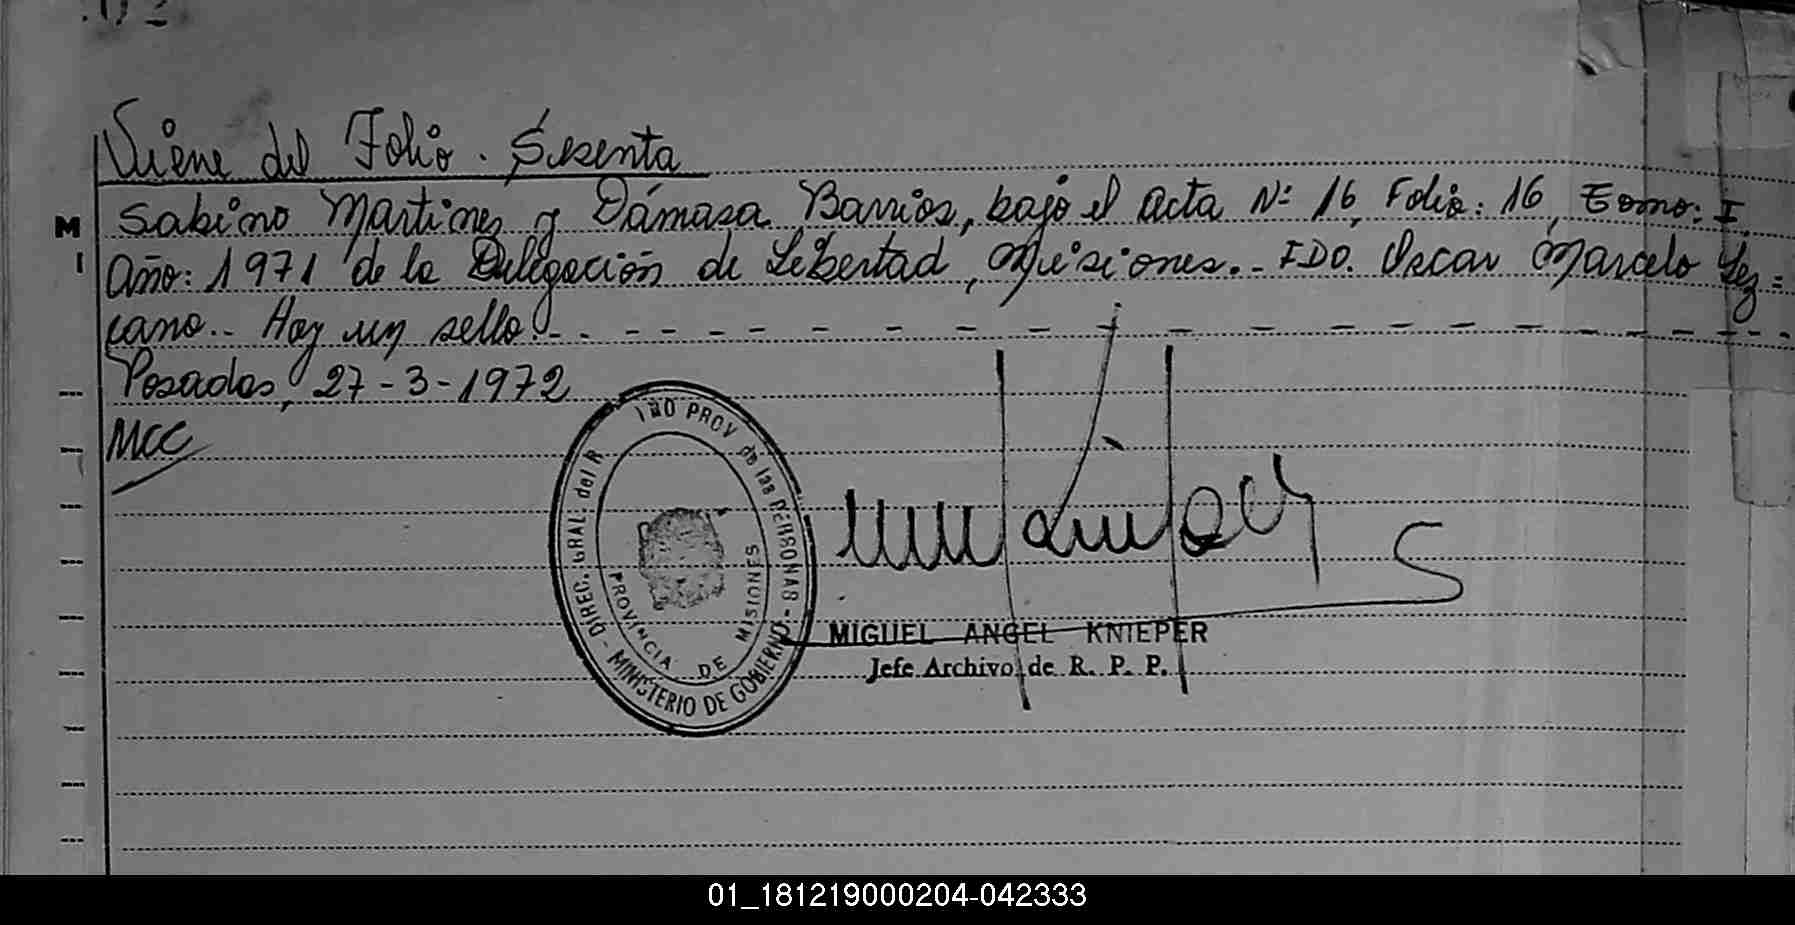 Viene del Folio. Sesenta
Sabino Martinez y Dámasa Barrios, bajo el acta Nº 16, Folio: 16, Tomo: I
M
Año: 1971 de la Delegación de Libertad, Misiones.- FDO. Oscar Marcelo Lez=
I
cano.- Hay un sello.- - - - - - - - - - - - - - - - - - - -
Posadas, 27-3-1972
MCC
DIREC. GRAL. del R PROV de las PERSONAS -
MINISTERIO DE GOBIERNO
PROVINCIA DE MISIONES
MIGUEL ANGEL KNIEPER
Jefe Archivo de R. P. P.
01_181219000204-042333